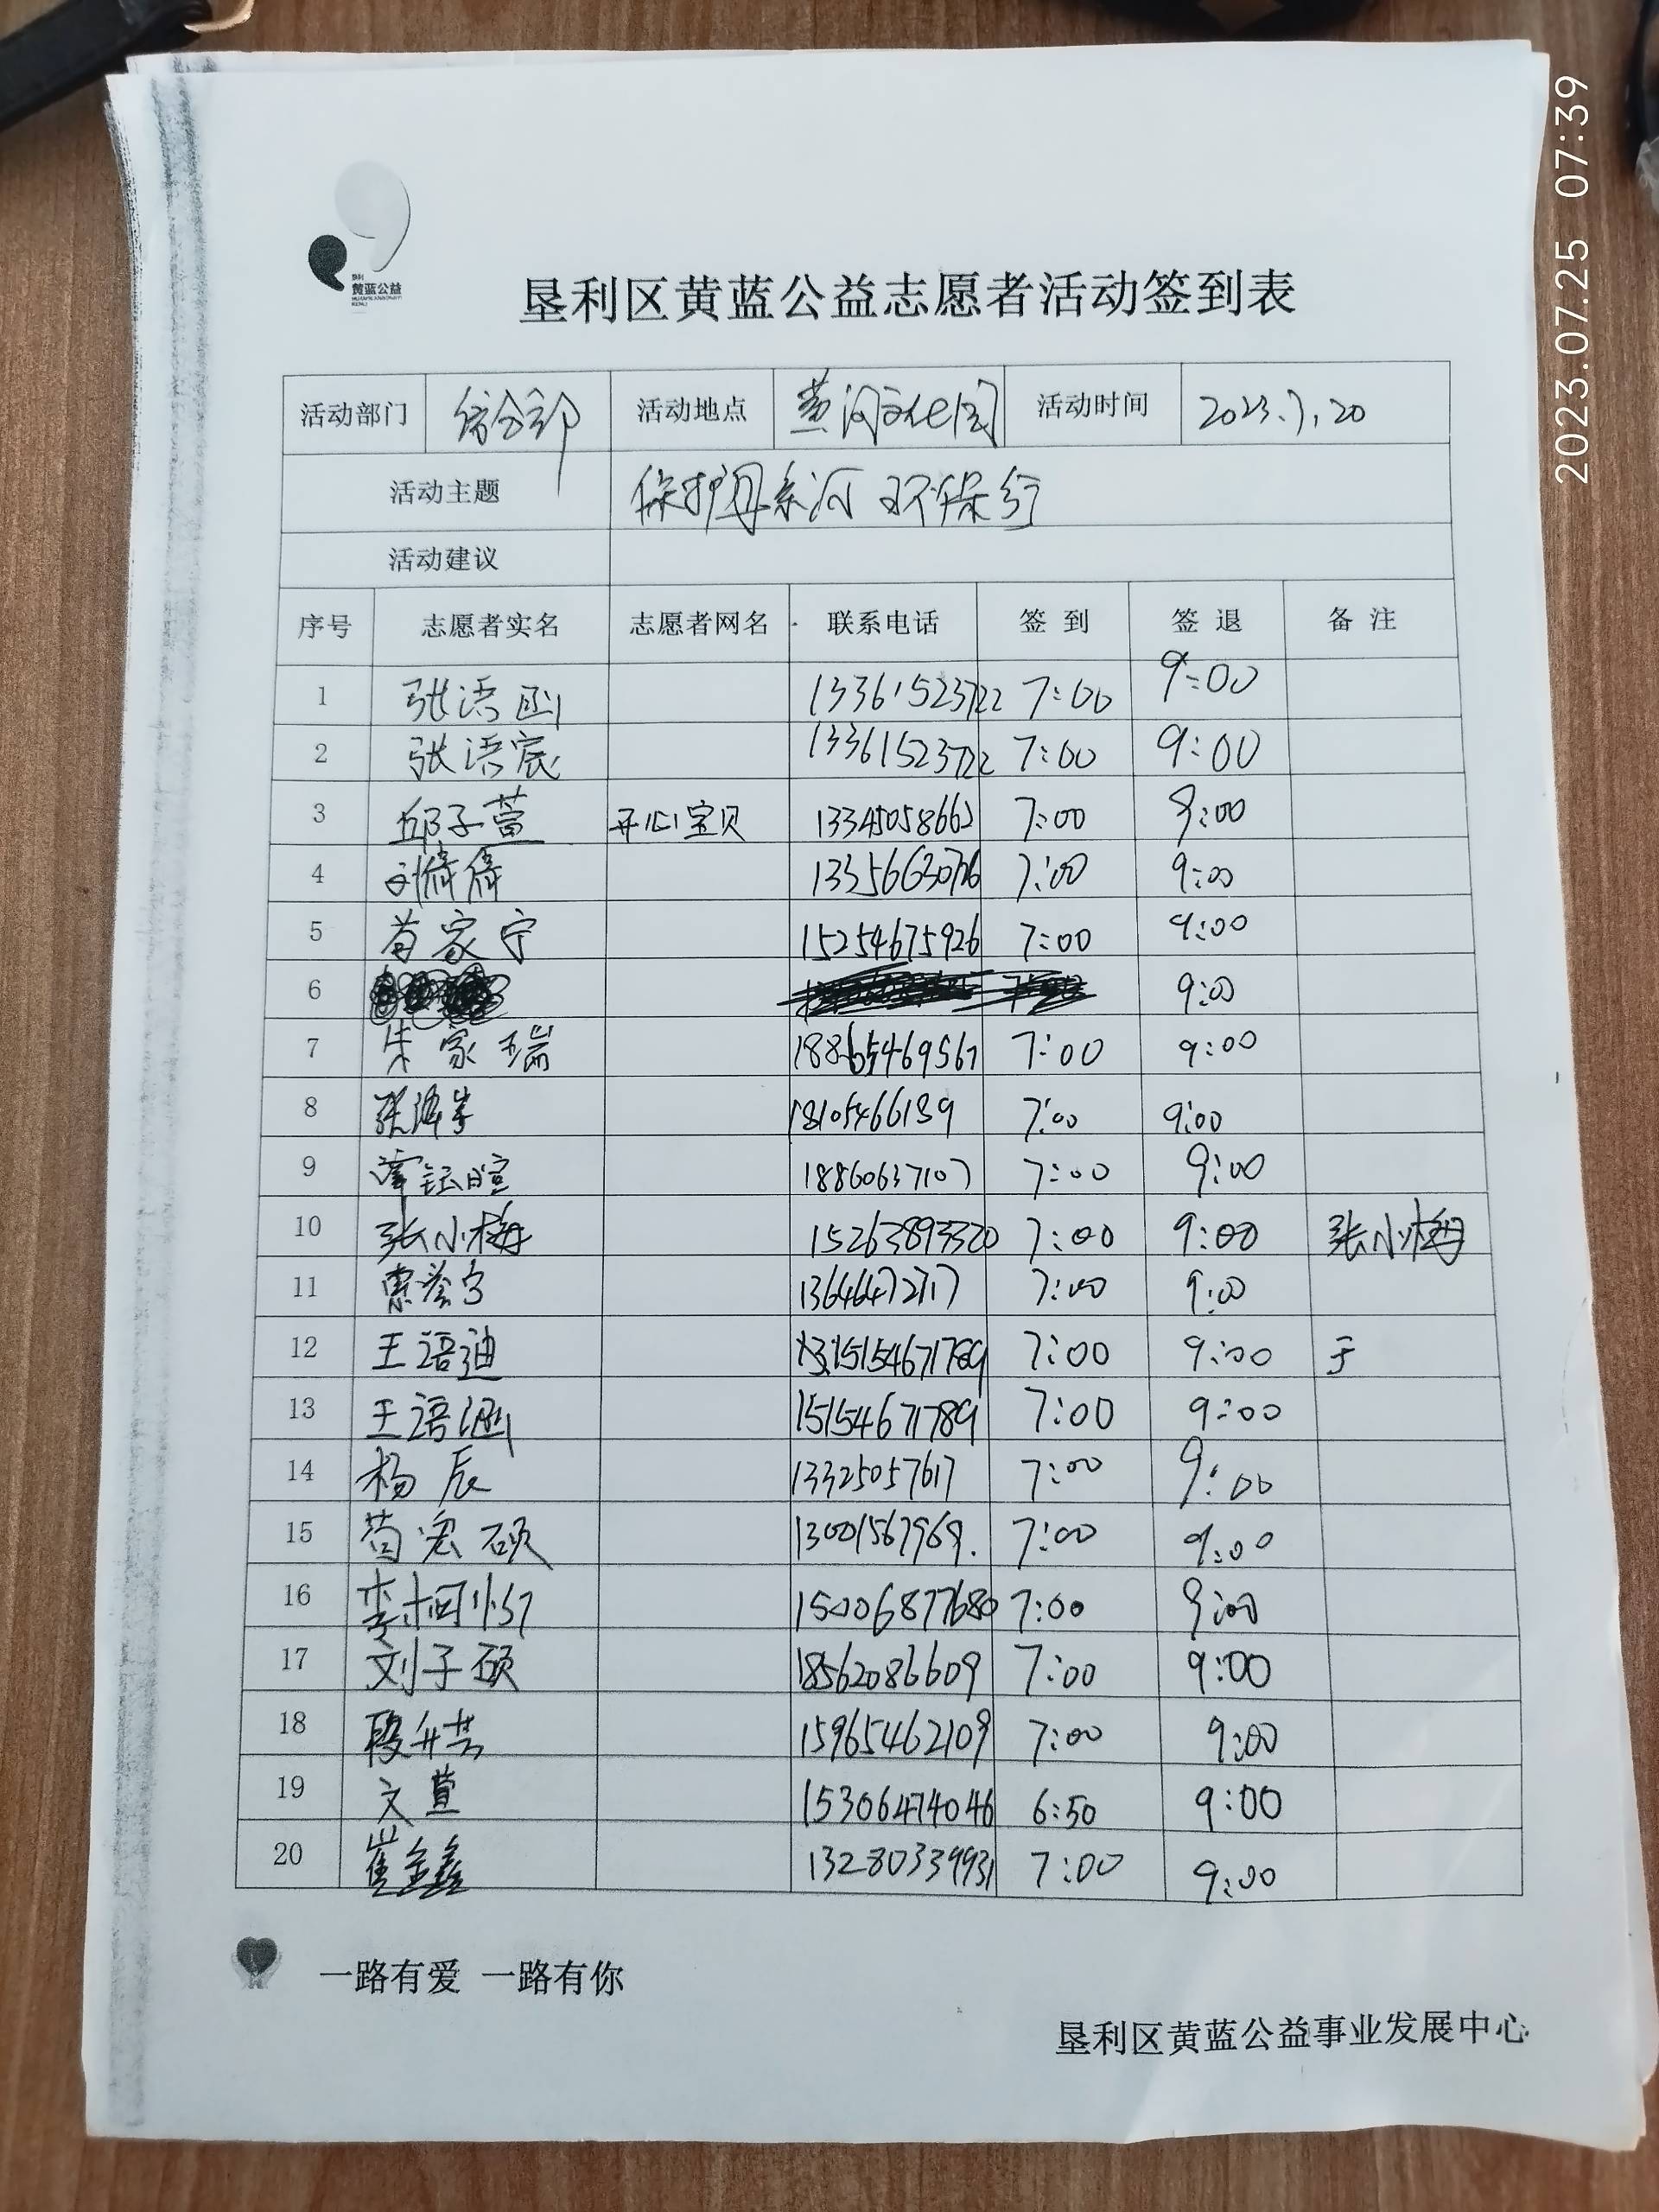 2023.07.25 07:39
黄蓝公益
垦利区黄蓝公益志愿者活动签到表
活动部门 综合部 活动地点 黄河文化园 活动时间 2023.7.20
活动主题 保护母亲河 环保行
活动建议
序号 志愿者实名 志愿者网名 联系电话 签到 签退 备注
1 张语函 13361523722 7:00 9:00
2 张语宸 13361523722 7:00 9:00
3 邱子萱 开心宝贝 13345058662 7:00 9:00
4 刘倩倩 7:00 9:00
5 苟家宁 15254675926 7:00 9:00
6 9:00
7 朱家瑞 18865469567 7:00 9:00
8 张泽宇 7:00 9:00
9 18860637107 7:00 9:00
10 张小梅 15263893320 7:00 9:00 张小梅
11 13646472717 7:00 9:00
12 王语迪 15154671789 7:00 9:00 于
13 王语涵 15154671789 7:00 9:00
14 杨辰 13325057617 7:00 9:00
15 苟宏硕 13001567969. 7:00 9:00
16 李柯 15006877680 7:00 9:00
17 刘子硕 18562086609 7:00 9:00
18 段 15965462109 7:00 9:00
19 文萱 15306474046 6:50 9:00
20 崔金鑫 13280339931 7:00 9:00
一路有爱 一路有你
垦利区黄蓝公益事业发展中心